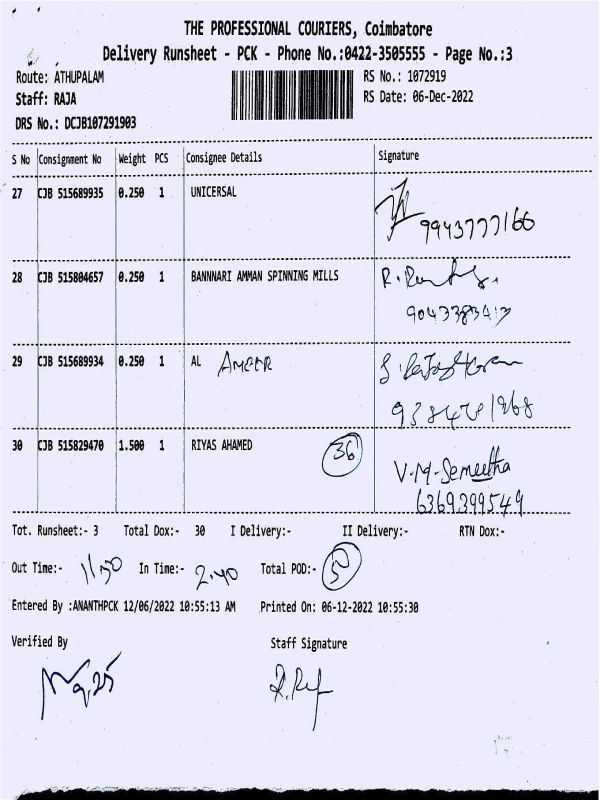 THE PROFESSIONAL COURIERS, Coimbatore
Delivery Runsheet - PCK - Phone No.:0422-3505555 - Page No.:3
Route: ATHUPALAM RS No.: 1072919
Staff: RAJA RS Date: 06-Dec-2022
DRS No.: DCJB107291903
S No Consignment No Weight PCS Consignee Details Signature
27 CJB 515689935 0.250 1 UNICERSAL
9943777166
28 CJB 515804657 0.250 1 BANNNARI AMMAN SPINNING MILLS
29 CJB 515689934 0.250 1 AL AMEER
30 CJB 515829470 1.500 1 RIYAS AHAMED 36
V.M.Semeetha
6369399549
Tot. Runsheet:- 3 Total Dox:- 30 I Delivery:- II Delivery:- RTN Dox:-
Out Time:- 11.50 In Time:- 2.40 Total POD:- 5
Entered By :ANANTHPCK 12/06/2022 10:55:13 AM Printed On: 06-12-2022 10:55:30
Verified By Staff Signature